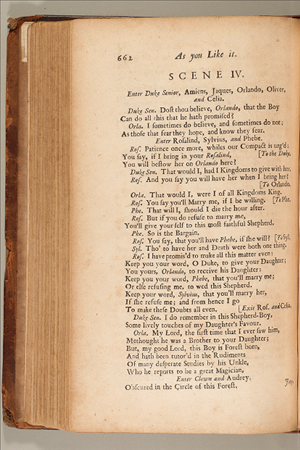 662 As you Like it.
SCENE IV.
Enter Duke Senior, Amiens, Jaques, Orlando, Oliver,
and Celia.
Duke Sen. Dost thou believe, Orlando, that the Boy
Can do all this that he hath promised?
Orla. I sometimes do believe, and sometimes do not;
As those that fear they hope, and know they fear.
Enter Rosalind, Sylvius, and Phebe.
Ros. Patience once more, whiles our Compact is urg'd:
You say, if I bring in your Rosalind, [To the Duke.
You will bestow her on Orlando here?
Duke Sen. That would I, had I Kingdoms to give with her.
Ros. And you say you will have her when I bring her?
[To Orlando.
Orla. That would I, were I of all Kingdoms King.
Ros. You say you'll Marry me, if I be willing. [To Phe.
Phe. That will I, should I die the hour after.
Ros. But if you do refuse to marry me,
You'll give your self to this most faithful Shepherd.
Phe. So is the Bargain.
Ros. You say, that you'll have Phebe, if she will? [To Syl.
Syl. Tho' to have her and Death were both one thing.
Ros. I have promis'd to make all this matter even:
Keep you your word, O Duke, to give your Daughter;
You yours, Orlando, to receive his Daughter:
Keep you your word, Phebe, that you'll marry me;
Or else refusing me, to wed this Shepherd.
Keep your word, Sylvius, that you'll marry her,
If she refuse me; and from hence I go
To make these Doubts all even. [Exit Ros. and Celia.
Duke Sen. I do remember in this Shepherd-Boy,
Some lively touches of my Daughter's Favour.
Orla. My Lord, the first time that I ever saw him,
Methought he was a Brother to your Daughter;
But, my good Lord, this Boy is Forest born,
And hath been tutor'd in the Rudiments
Of many desperate Studies by his Unkle,
Who he reports to be a great Magician,
Enter Clown and Audrey.
Obscured in the Circle of this Forest.